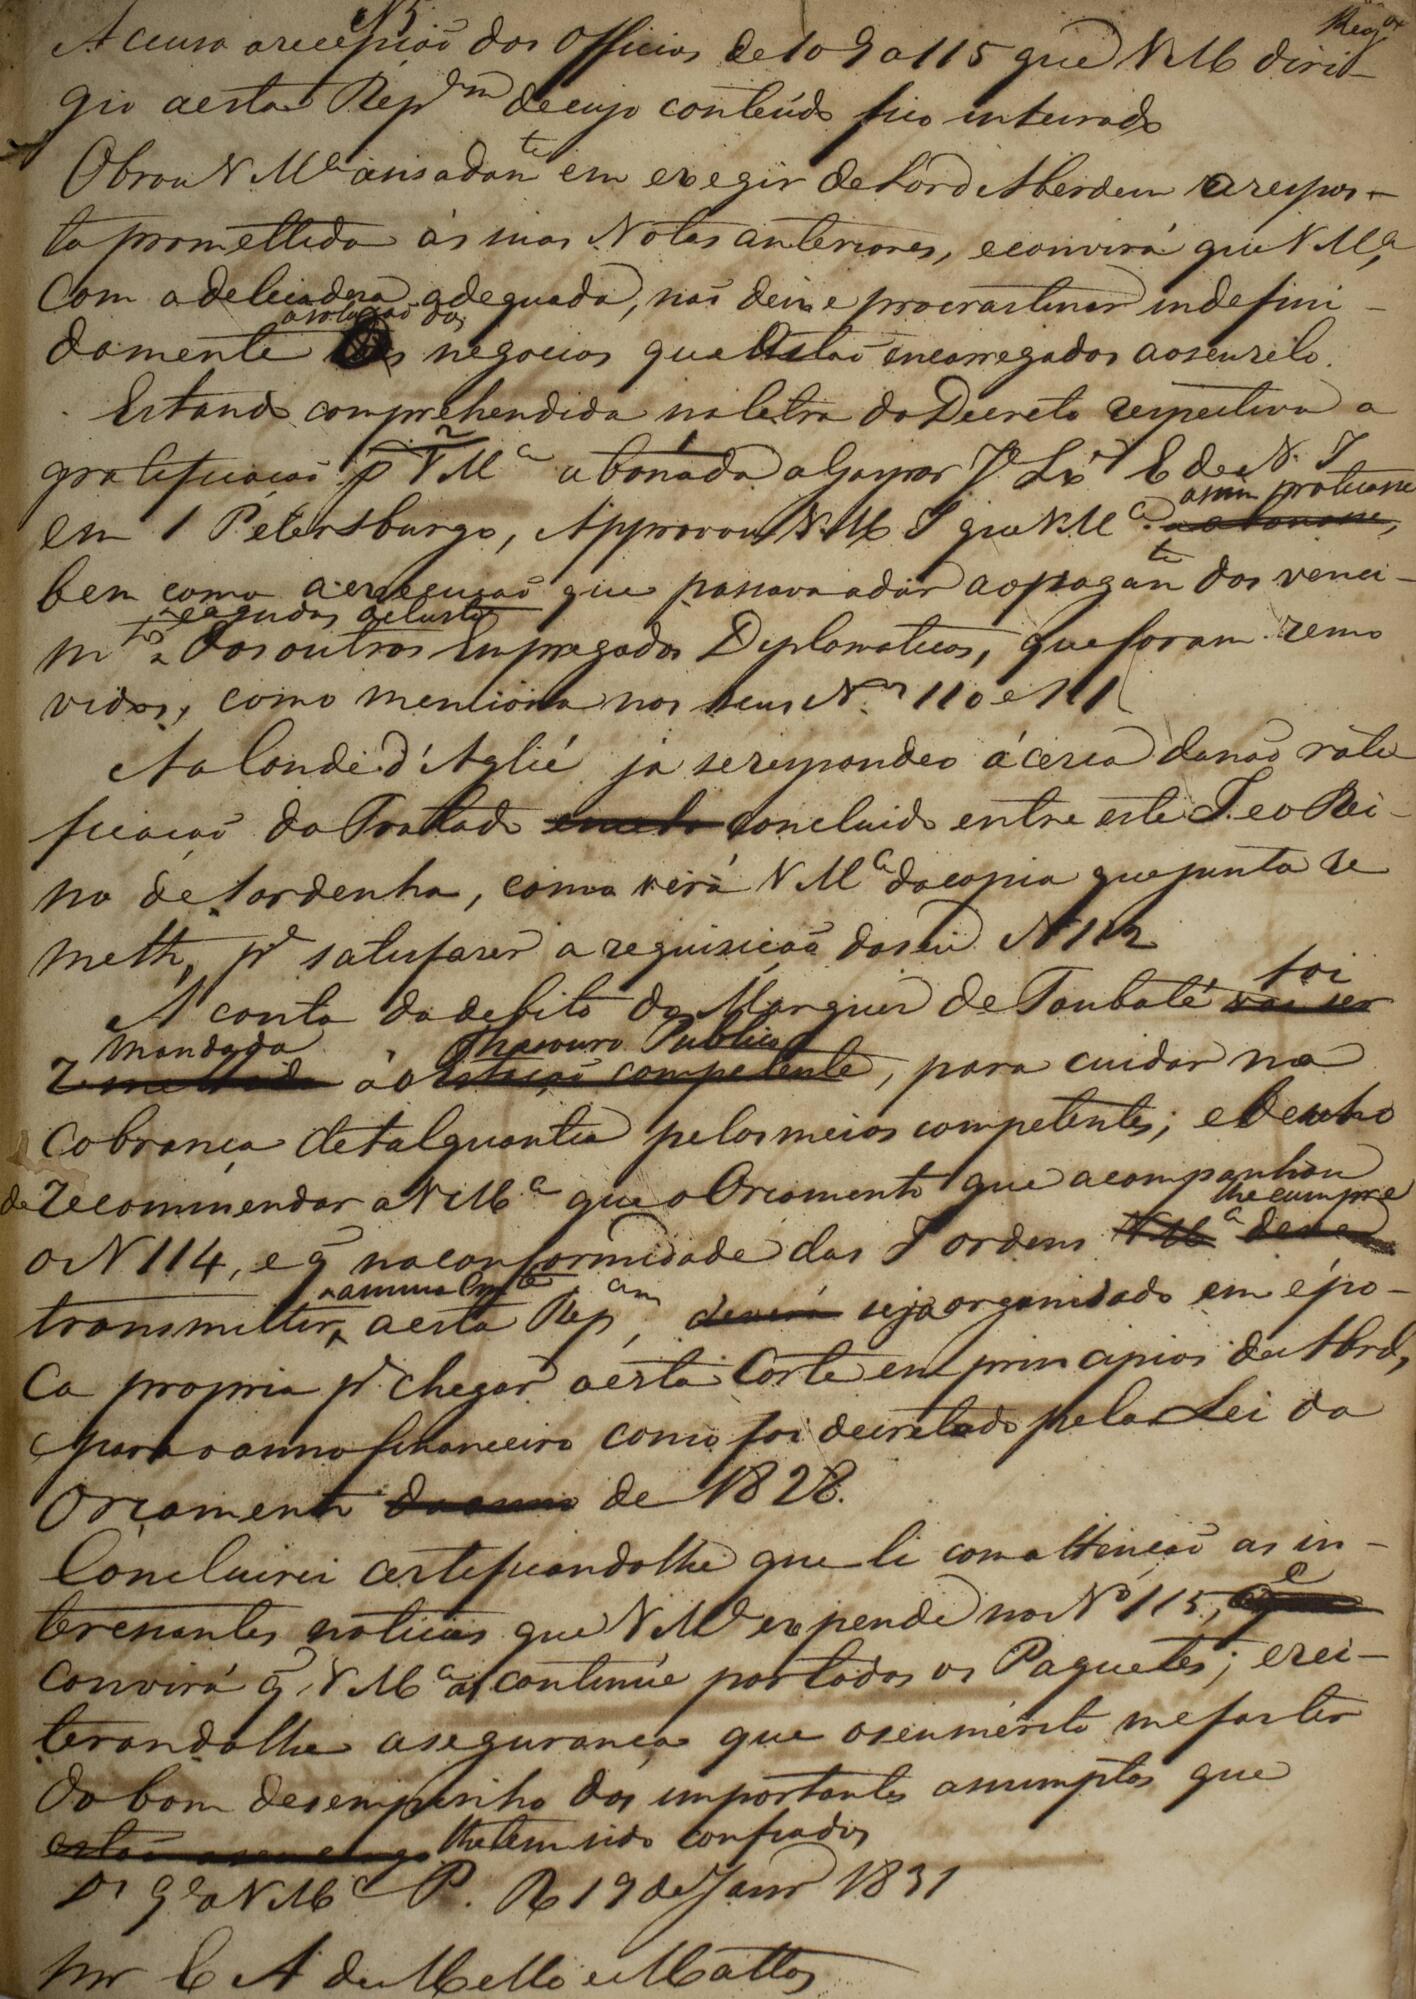 N 5
Reg
Accusa a recepção dos Officios de 109 a 115 que V Mce diri-
gio a esta Repam de cujo conteúdo fico inteirado
Obrou V Mce avisadante em exegir de Lord Aberdeen a respos-
ta promettida ás suas Notas anteriores, e convirá que V Mce,
Com a delicadesa adequada, não deixe procrastinar indefini-
a solução dos
damente negocios que estão encarregados ao seu zelo.
Estando comprehendida na letra do Decreto respectivo a
gratificação p V Mce abonada a Gaspar Je Lxa E de N. I
assim praticasse
em S Petersburgo, Approvou S. M. I que V Mce abonasse,
bem como a execução que passava a dar ao pagante dos venci-
mtos dos outros Empregados Diplomaticos, que foram remo
vidos, como menciona nos seus Nos 110 e 111
Ao Conde d'Aglié já se respondeo ácerca da não rati
ficação do Tratado concluido entre este I. e o Rei-
no de Sardenha, como verá V Mce da copia que junta re
metto, pa satisfazer a requisição do seu N 112
foi
A conta do debito do Marquez de Taubaté vai ser
mandada Thesouro Publico
remettida á Estação competente, para cuidar na
Cobrança de tal quantia pelos meios competentes; e tenho
de recommendar a V Mce que o Orçamento que acompanhou
lhe cumpre
o N 114, e q̃ na conformidade das I ordens V Mce deve
annualmte
transmittir, a esta Repam, deverá seja organisado em épo-
ca propria pa chegar a esta Corte em principios de Abril,
para o anno financeiro como foi decretado pela Lei do
Orçamento do anno de 1828.
Concluirei certificando lhe que li com attenção as in-
teressantes noticias que V Mce expende no No 115, e
convirá q̃ V Mce as continúe por todos os Paquetes; e rei-
terando lhe a segurança que o seu mérito me faz ter
do bom desempenho dos importantes assumptos que
estão a seu cargo lhe tem sido confiados
Ds Ge a V Mce P. R 19 de Janro 1831
Snr E A de Mello e Mattos